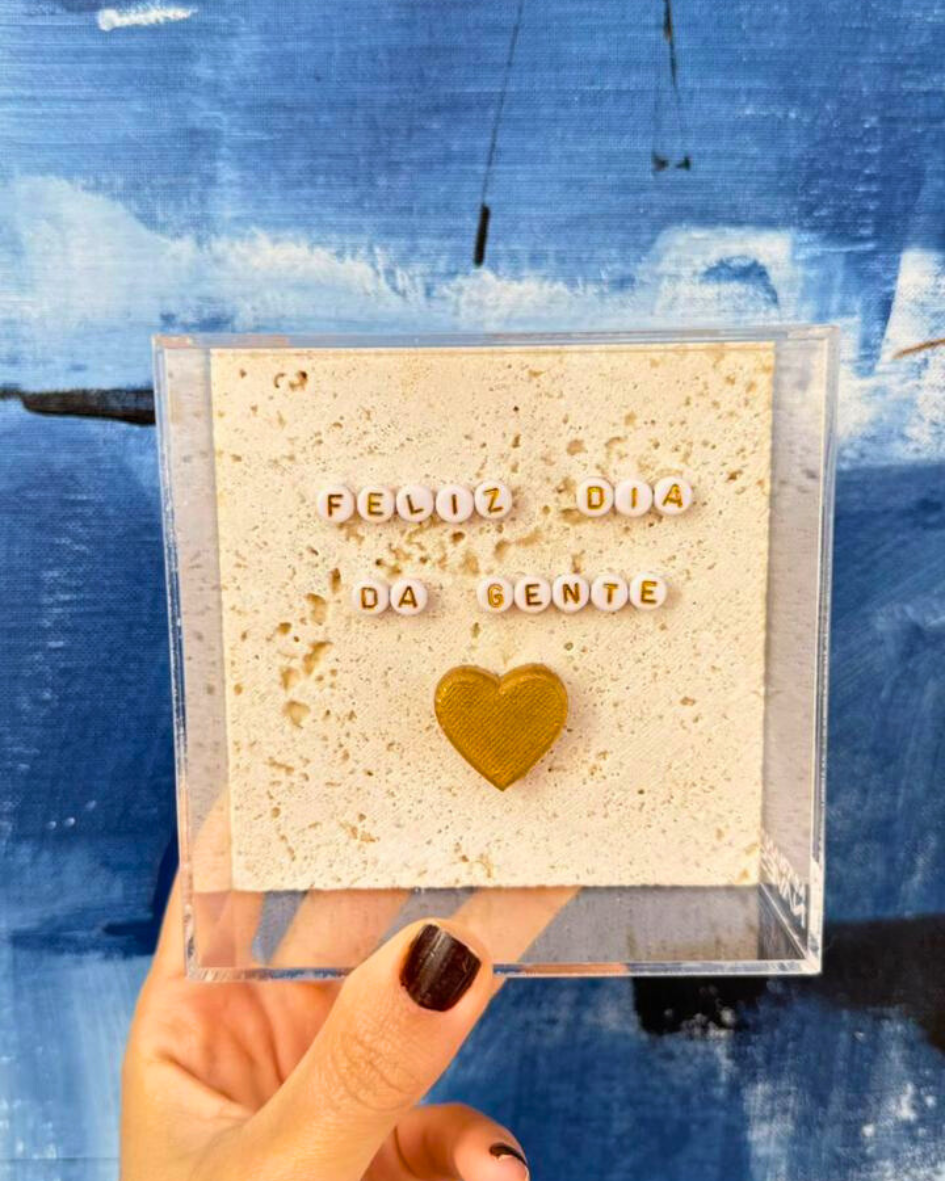 FELIZ DIA
DA GENTE